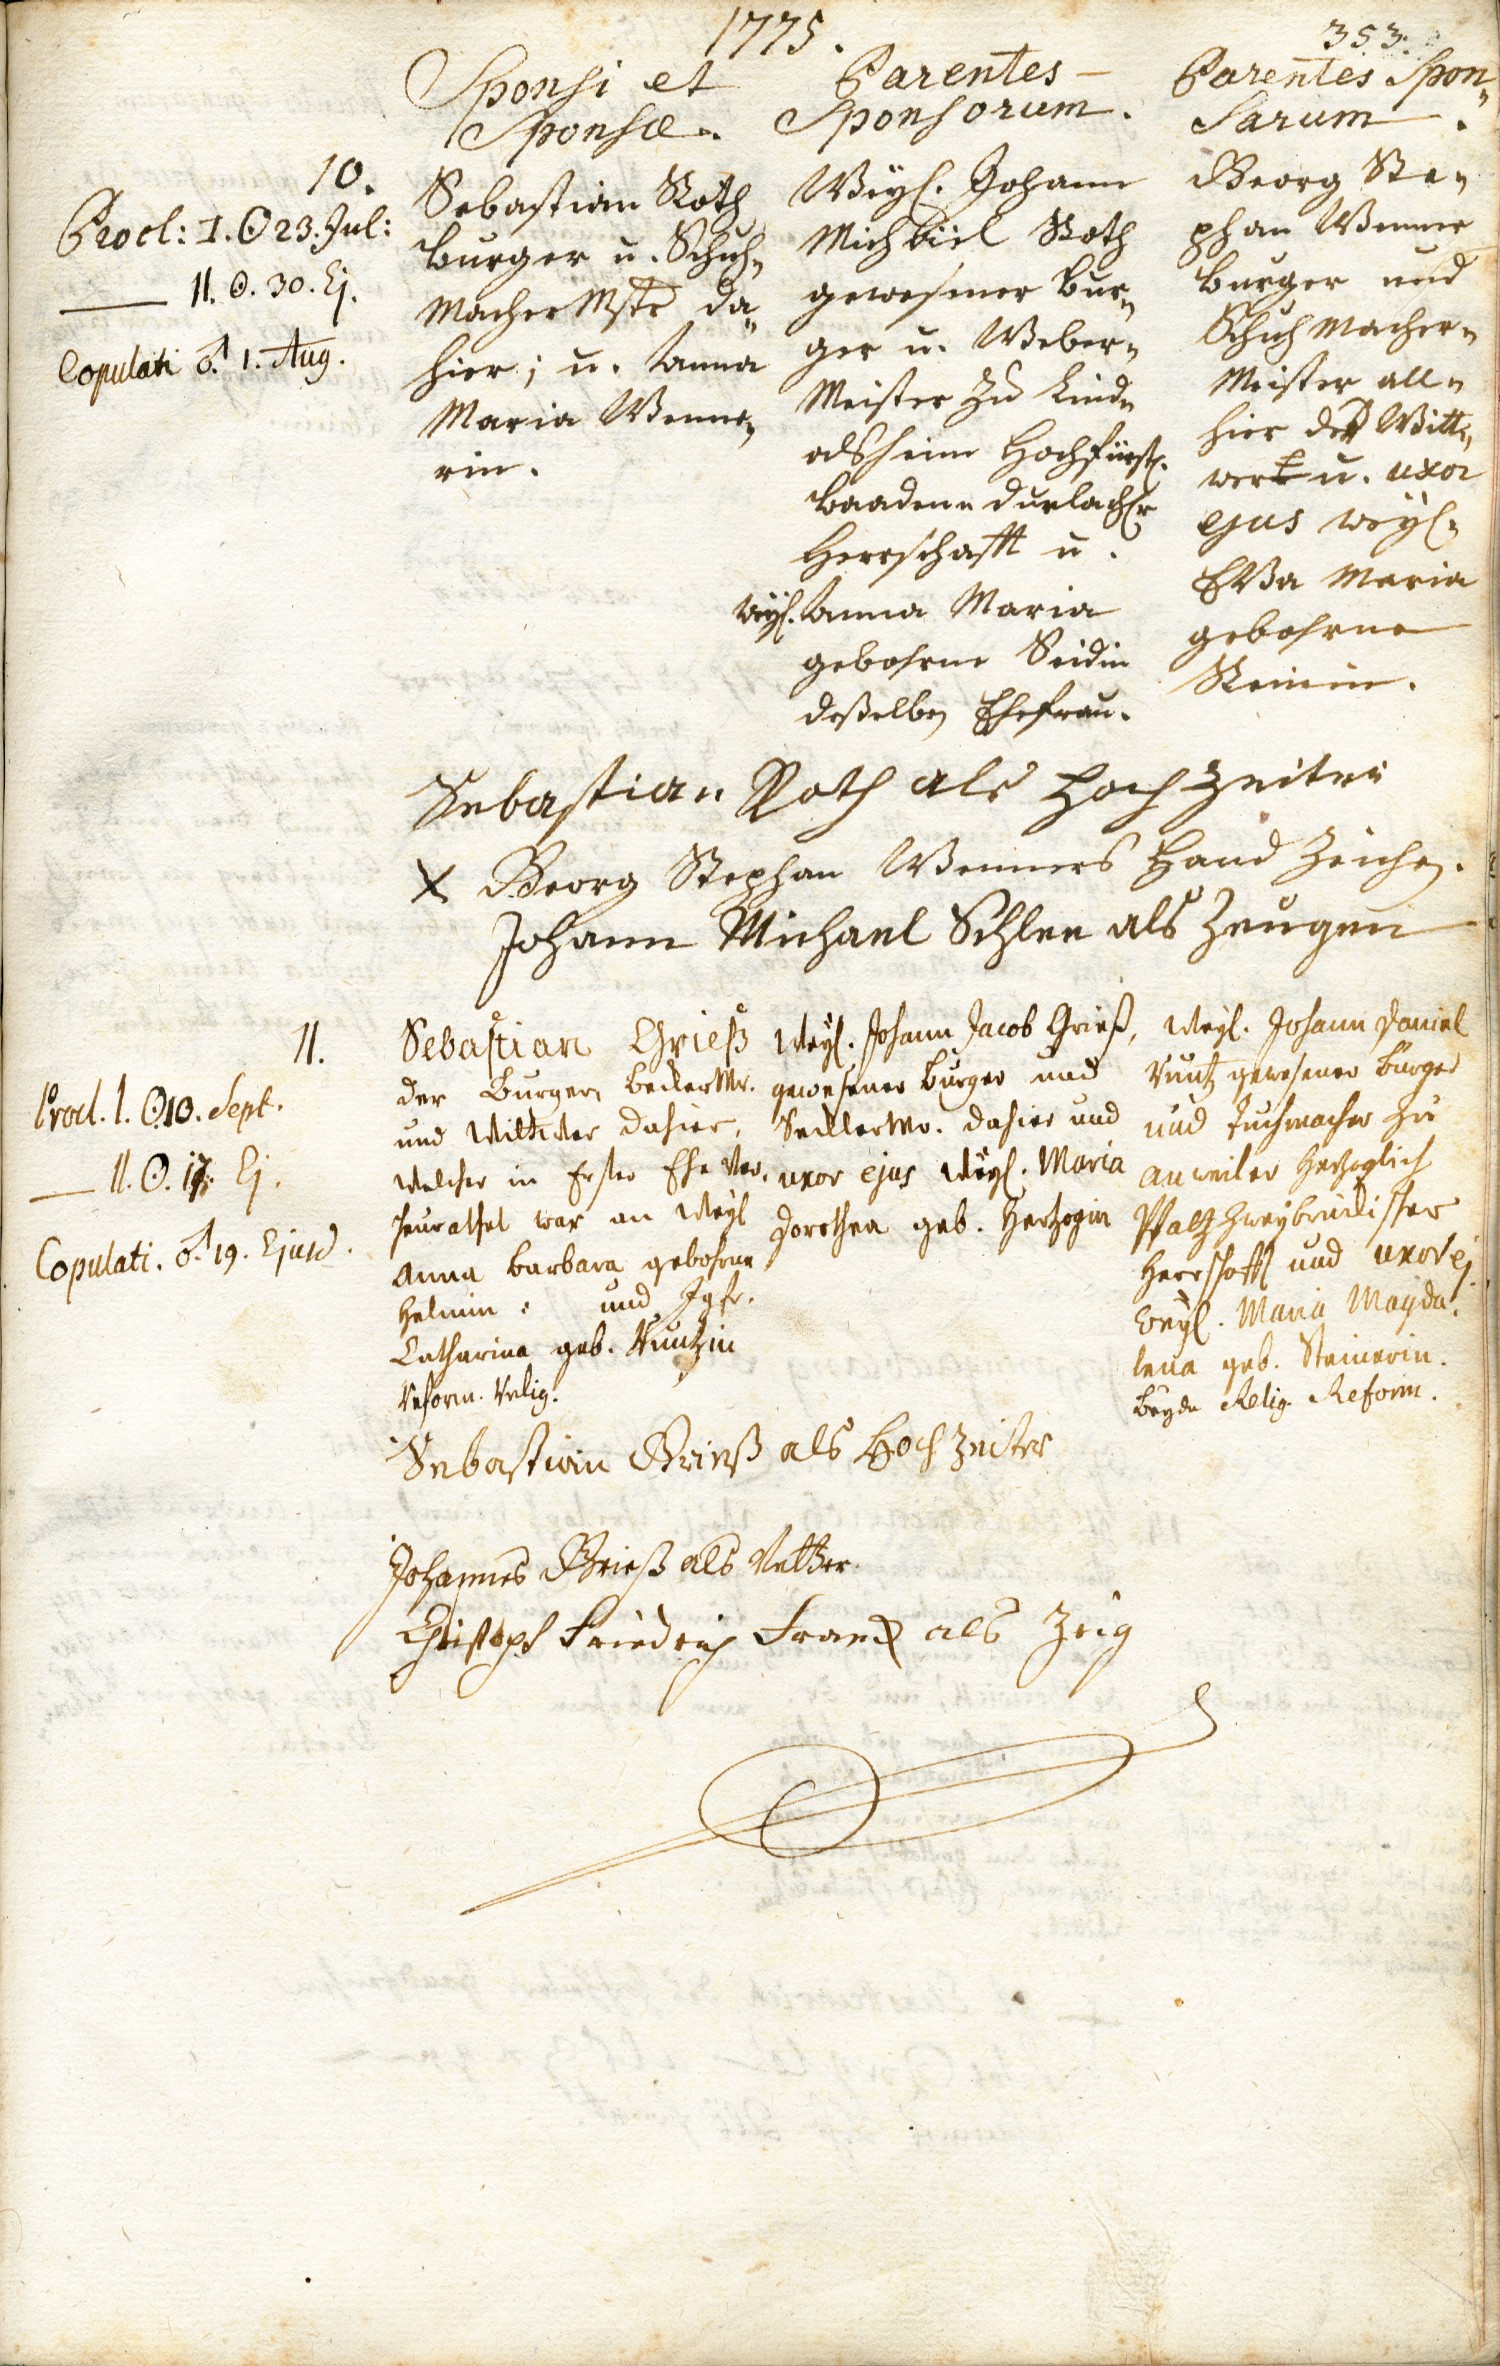 1775.
353.
Sponsi et
Sponsæ.
Parentes
Sponsorum.
Parentes Spon„
sarum.
10.
Procl: I. ⊙ 23. Jul:
II. ⊙. 30. Ej.
Copulati ♂. 1. Aug.
Sebastian Roth
burger u. Schuh„
macher Mstr da„
hier; u. Anna
Maria Wenne„
rin.
Weyl. Johann
Michael Roth
gewesener bur„
ger u. Weber„
Meister zu Lind„
olsheim Hochfürstl.
Baaden„ Durlachsr
Herrschafft u.
weyl. Anna Maria
gebohrne Seidin
deßelben Ehefrau.
Georg Ste„
phan Wenner
burger und
Schuhmacher„
Meister all„
hier der Witt„
wer u. uxor
ejus weyl.
Eva Maria
gebohrne
Steinin.
Sebastian Roth als Hochzeiter
X Georg Stephan Wenners Hand Zeichen.
Johann Michael Schlee als Zeugen
11.
Procl. I. ⊙ 10. Sept.
II. ⊙. 17. Ej.
Copulati. ♂. 19. Ejusd.
Sebastian Grieß
der Burger, Mr.
und Wittwer dahier,
welcher in Erster Ehe ver„
heurathet war an weyl
Anna Barbara gebohrne
Helmin. und Jgfr.
Catharina geb. Kuntzin
Reform. Relig.
Weyl. Johann Jacob Grieß,
gewesener burger und
Mr. dahier und
uxor ejus weyl. Maria
Dorothea geb. Hertzogin
Weyl. Johann Daniel
Kuntz gewesener burger
und Tuchmacher zu
Anweiler Hertzoglich
Pfaltz Zweybrückischer
Herrschafft und uxor ej
Weyl. Maria Magda„
lena geb. Steinerin.
beyde Relig. Reform.
Sebastian Grieß als Hochzeiter
Johannes Grieß als Vetter
Christoph Friedrich Franck als Zeig